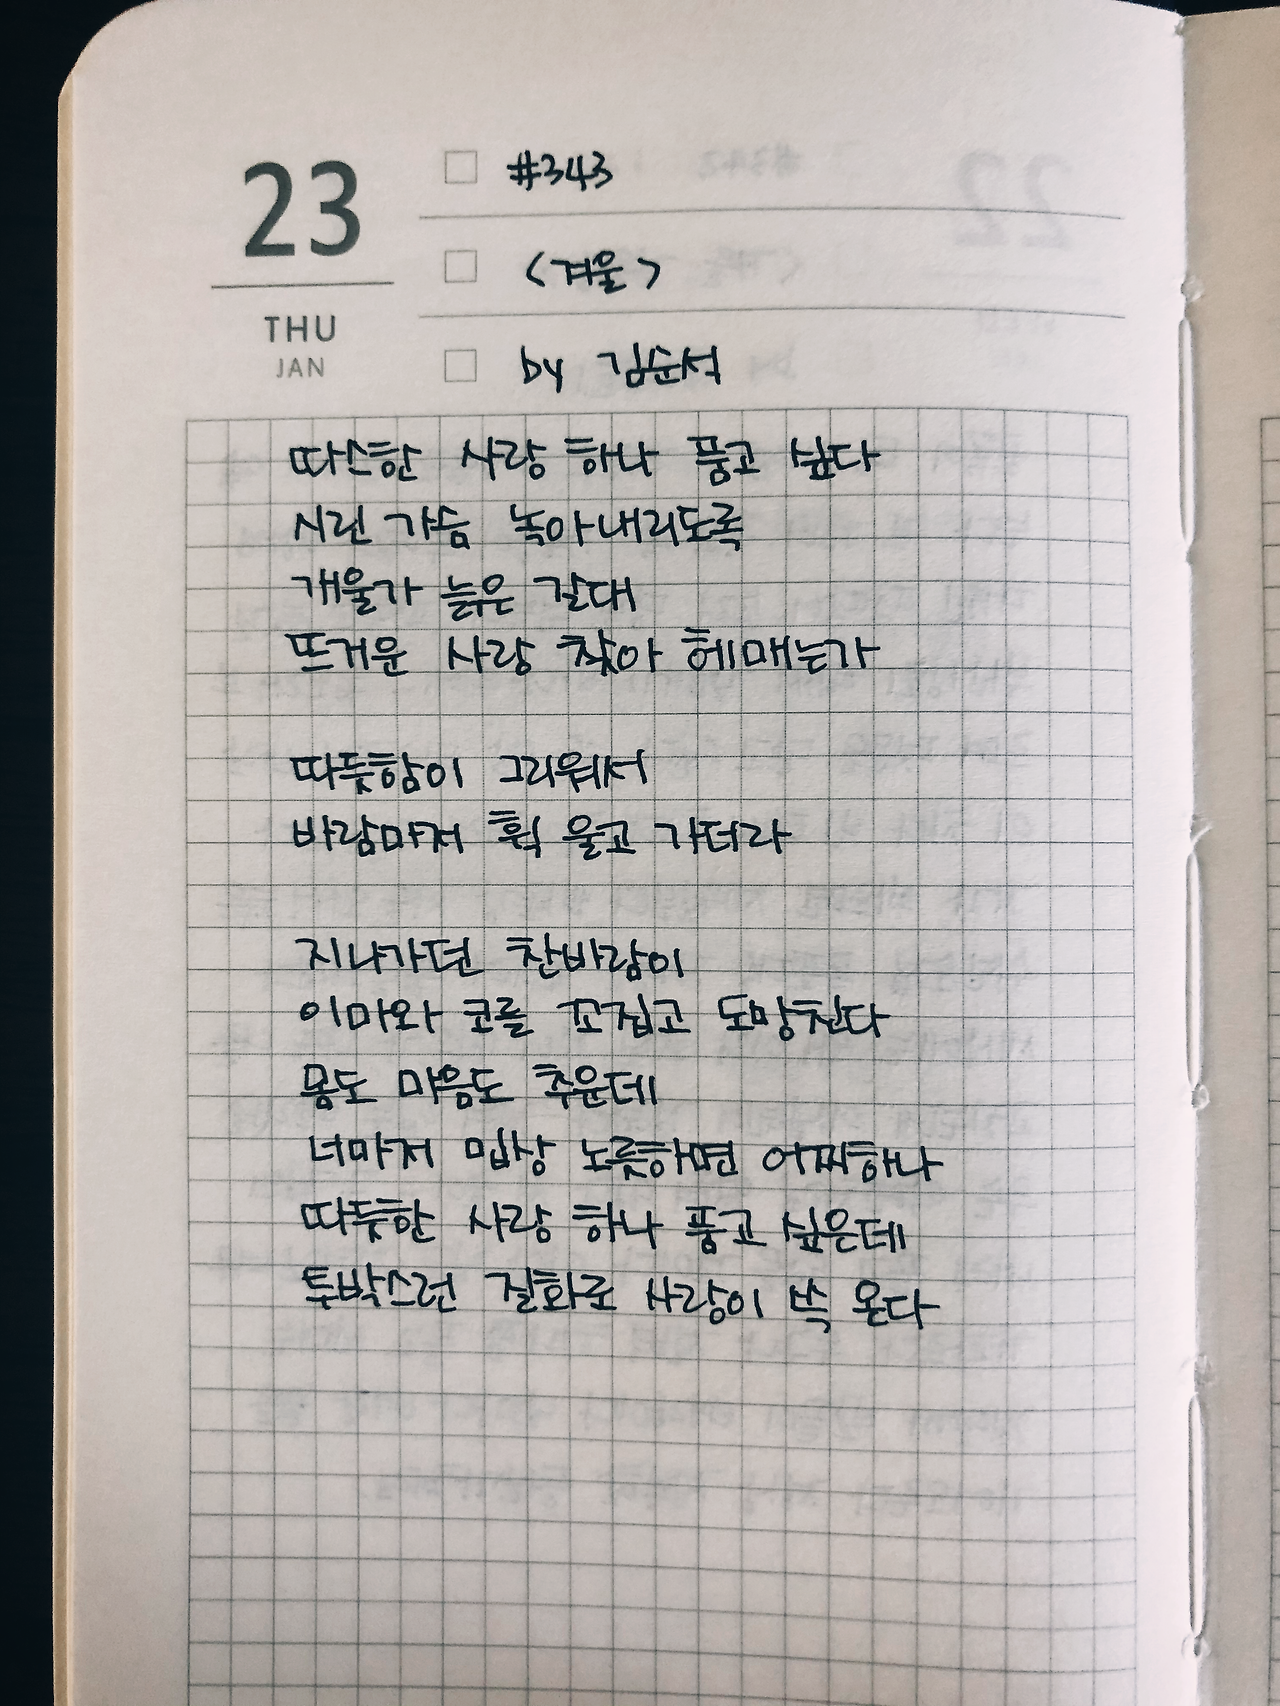 23
THU
JAN
#343
<겨울>
by 김순석
따스한 사랑 하나 품고 싶다
시린 가슴 녹아내리도록
개울가 늙은 갈대
뜨거운 사랑 찾아 헤매는가
따뜻함이 그리워서
바람마저 휙 울고 가더라
지나가던 찬바람이
이마와 코를 꼬집고 도망친다
몸도 마음도 추운데
너마저 밉상 노릇하면 어찌하나
따뜻한 사랑 하나 품고 싶은데
투박스런 질화로 사랑이 쏙 온다